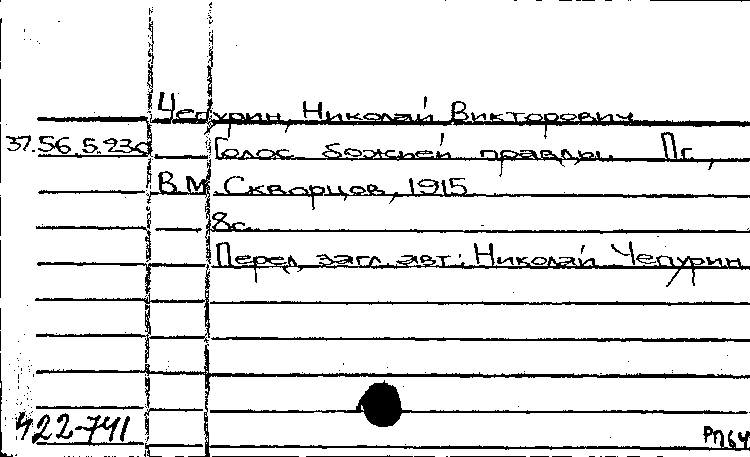 Чепурин, Николай Викторович
37.56.5.930 Голос божией правды. Пг.,
В.М. Скворцов, 1915.
8с.
Перед загл. авт.: Николай Чепурин
422-741
РП64